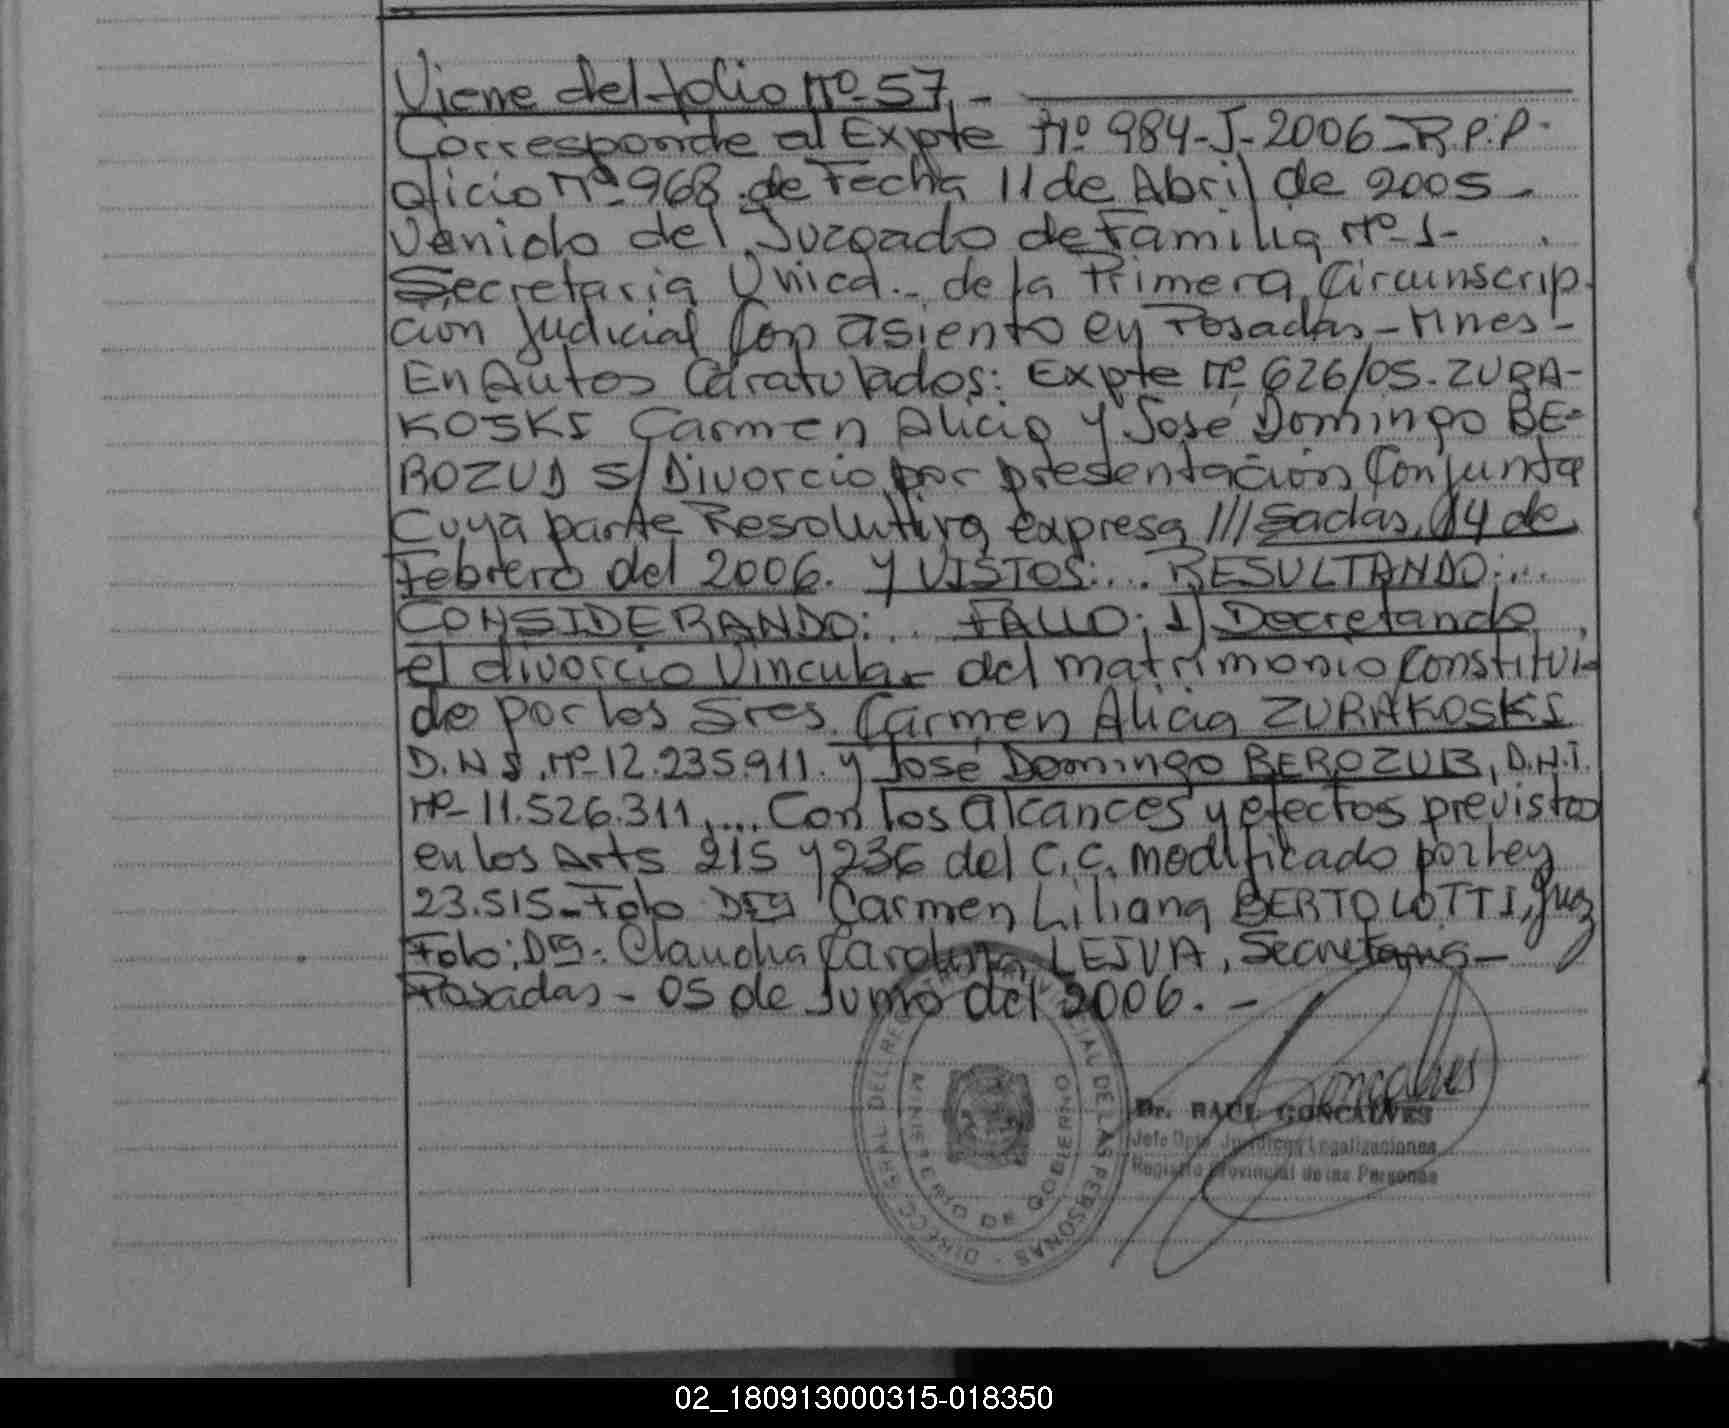 Viene del folio Nº 57.-
Corresponde al Expte Nº 984-J-2006-R.P.P.
oficio Nº 968 de Fecha 11 de Abril de 2005-
Venido del Juzgado de Familia Nº 1-
Secretaria Unica.- de la Primera Circunscrip-
cion Judicial Con asiento en Posadas-Mnes-
En Autos Caratulados: Expte Nº 626/05.ZURA-
KOSKI Carmen Alicia y José Domingo BE-
ROZUB S/Divorcio por presentación Conjunta
Cuya parte Resolutiva expresa ///sadas, 14 de
Febrero del 2006. Y VISTOS:... RESULTANDO:...
CONSIDERANDO:... FALLO; 1) Decretando
el divorcio Vincular del matrimonio Constitui-
do por los Sres. Carmen Alicia ZURAKOSKI
D.N.I. Nº 12.235.911. y José Domingo BEROZUB, D.N.I.
Nº 11.526.311,... Con los alcances y efectos previstos
en los Arts 215 y 236 del C.C. modificado por Ley
23.515.- Fdo Dra Carmen Liliana BERTOLOTTI, Juez
Fdo: Dra. Claudia Carolina LEIVA, Secretaria-
Posadas - 05 de Junio del 2006.-
DIRECC. GRAL. DEL REG. PROVINCIAL DE LAS PERSONAS
MINISTERIO DE GOBIERNO
Goncalves
Dr. RAUL GONCALVES
Jefe Dpto. Jurídico Legalizaciones
Registro Provincial de las Personas
02_180913000315-018350